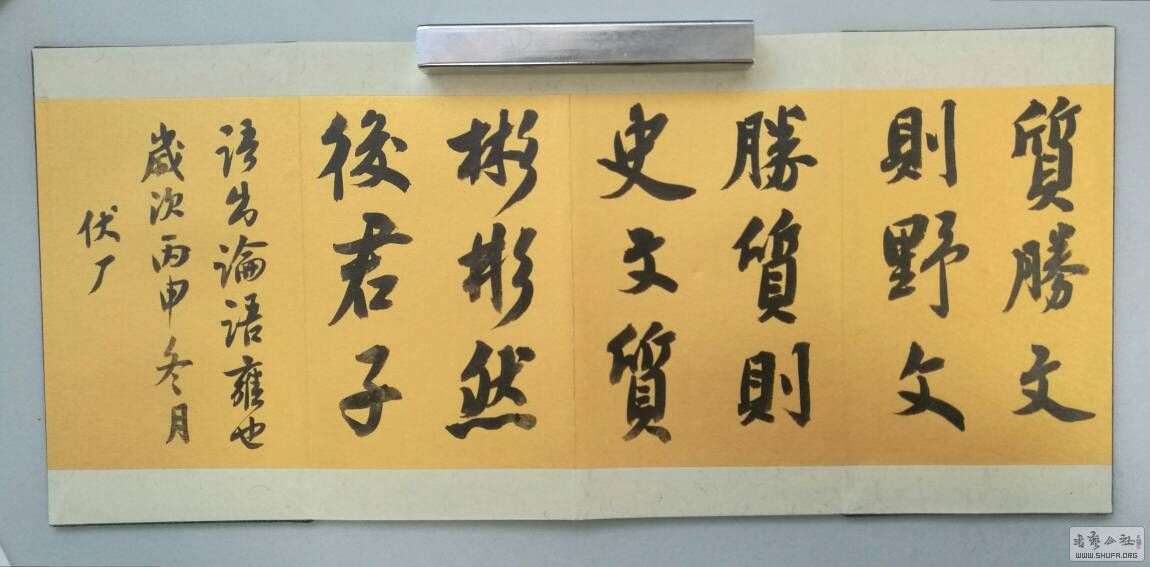 質勝文
則野文
勝質則
史文質
彬彬然
後君子
语出論语雍也
歲次丙申冬月
伏厂
書藝公社
WWW.SHUFA.ORG